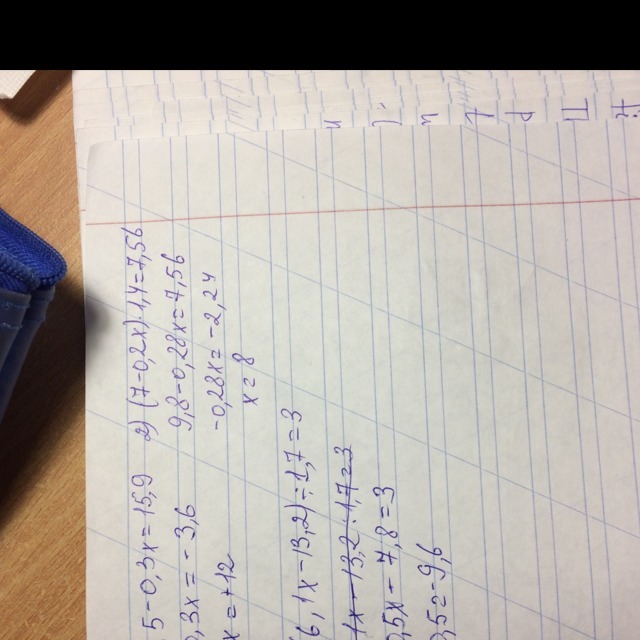 5-0,3x=15,9 2) (7-0,2x)·1,4=7,56
,3x=-3,6 9,8-0,28x=7,56
x=+12 -0,28x=-2,24
x=8
6,1x-13,2):1,7=3
1x-13,2:1,7=3
,5x-7,8=3
,5=9,6